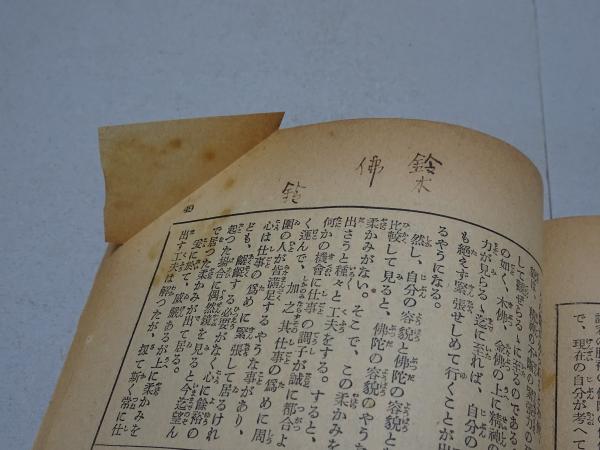 鈴木
佛
鈴
して聽せらるゝに至るのである。
の如く、木佛、金佛の上に精神の
力が見らるゝ迄に至れば、自分の
も絶えず緊張せしめて行くことが出
るやうになる。
然し、自分の容貌と佛陀の容貌とを
比較して見ると、佛陀の容貌のやうな
柔かみがない。そこで、この柔かみを
出さうと種々と工夫をする。すると、
何かの機會に仕事の調子が誠に都合よ
く運んで、加之其仕事の爲めに周
圍の人が皆滿足するやうな事があり、
心は仕事の爲めに緊張して居るけれ
ども、齷齪する必要がなく、心に餘裕の
起つた場合に偶然鏡を見ると、今迄望ん
で居つた柔かみが出て居る。
茲に於て、威嚴あるが上に柔かみを
出す工夫は解つたが、扨て斯く常に仕
49
で、現在の自分が考へて